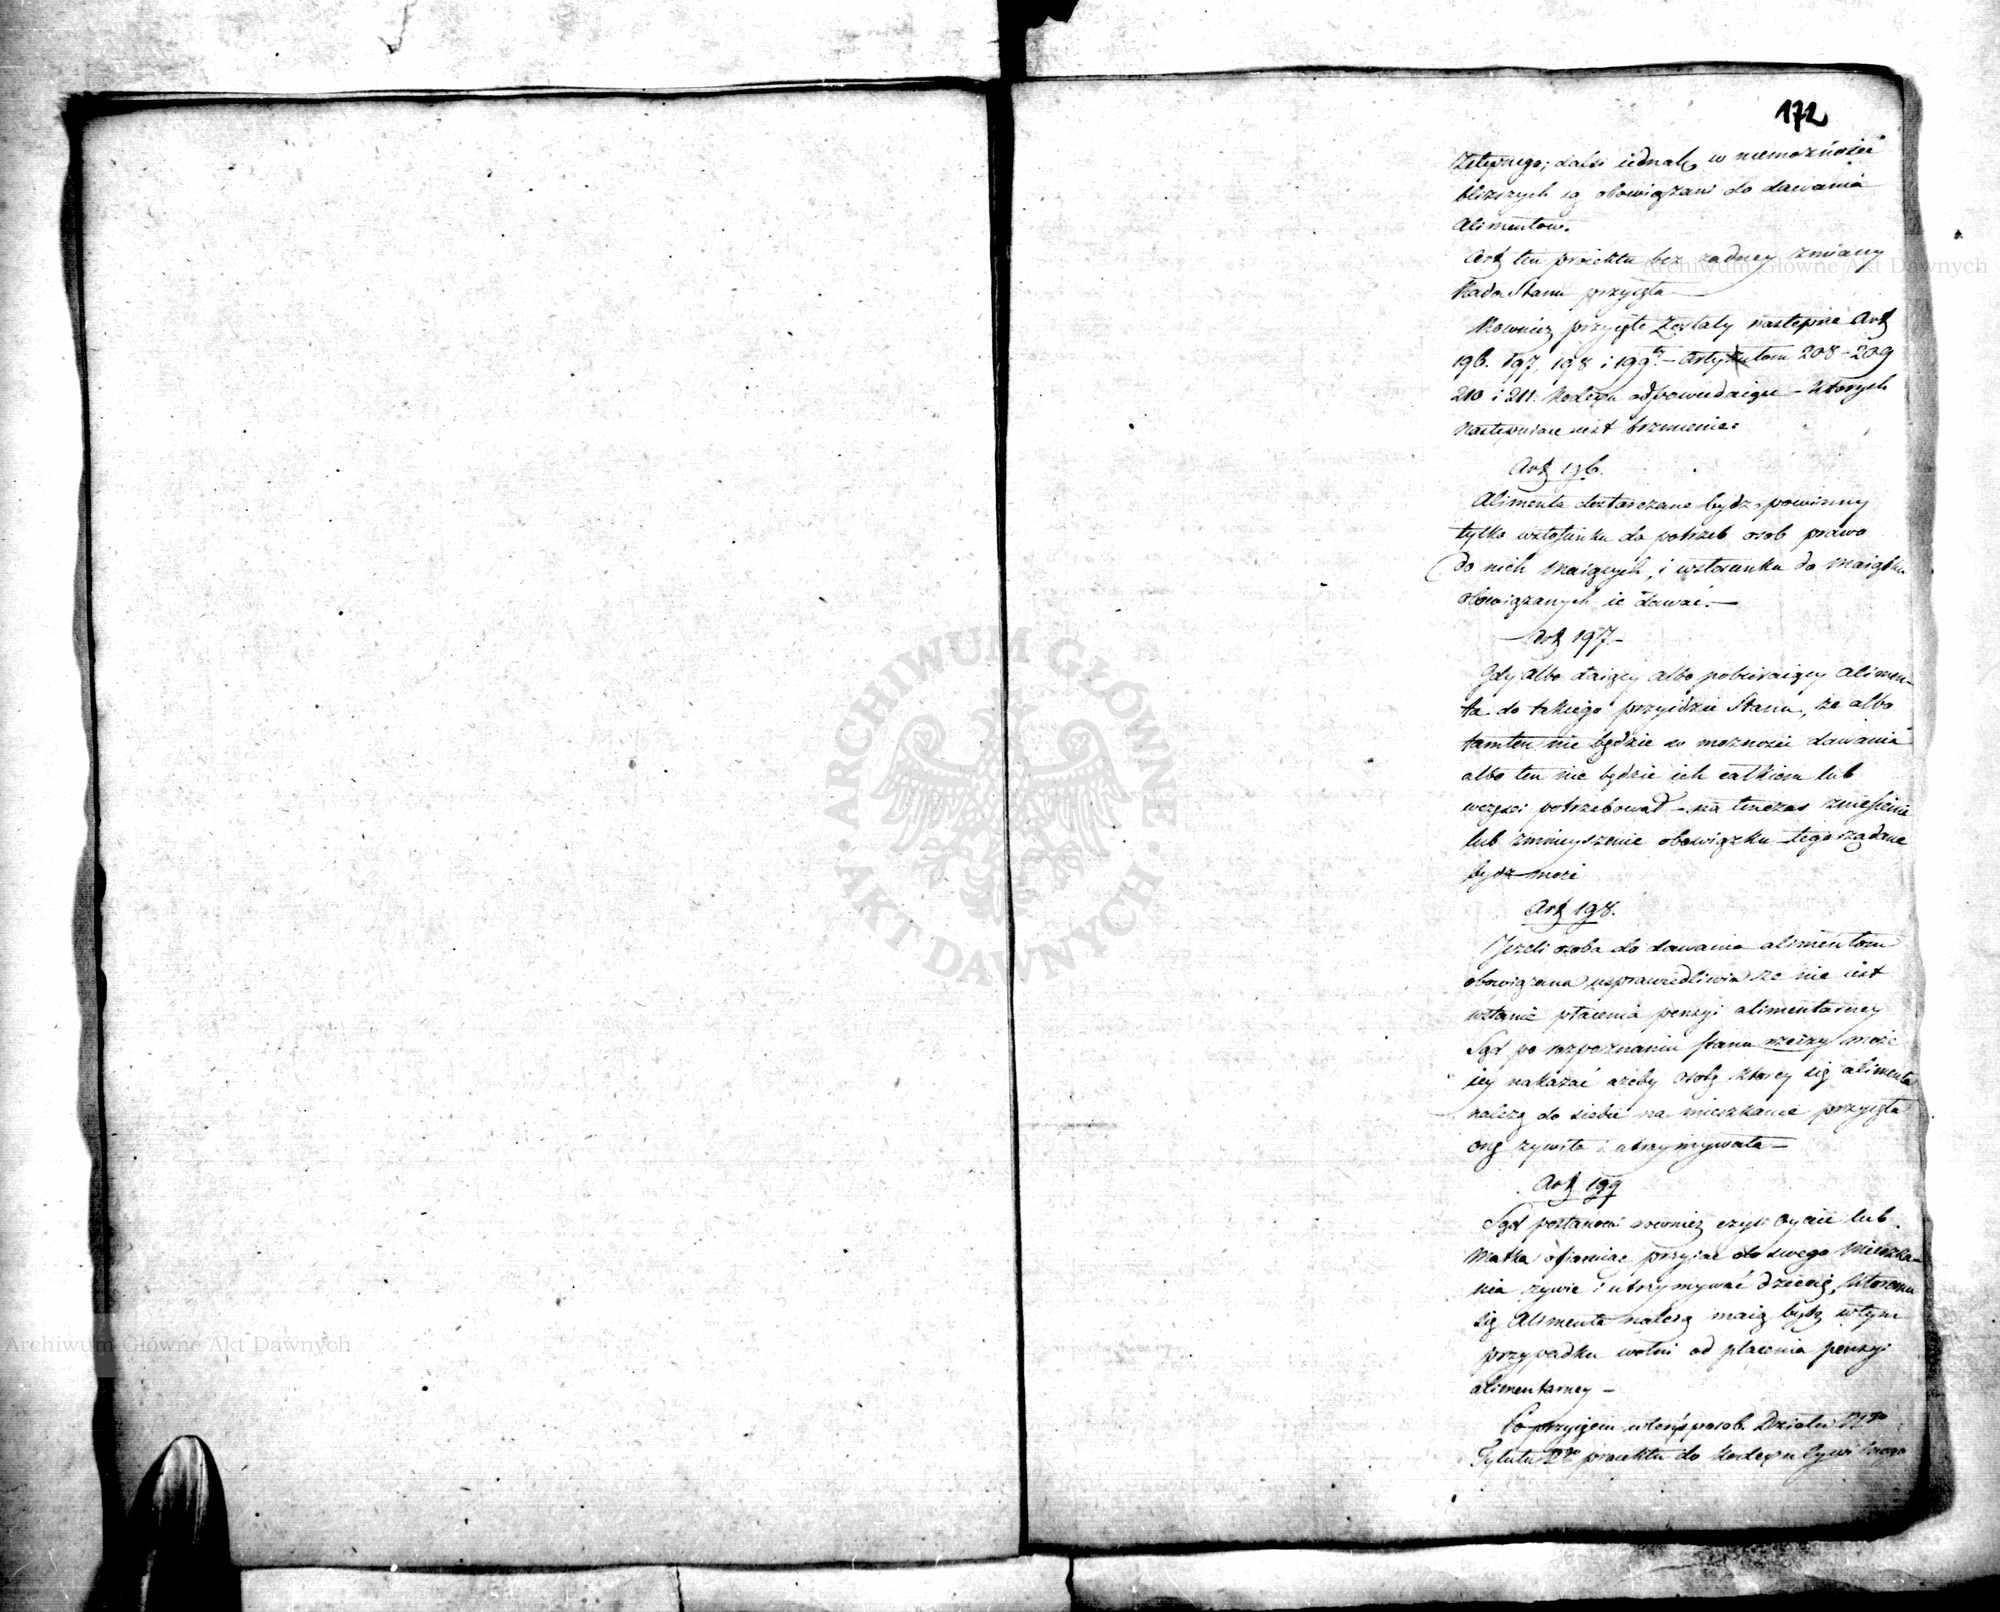 172
Zstępnego; dalsi iednak w niemożności
bliższych są obowiązani do dawania
Alimentow.
Art ten proiektu bez żadney zmiany
Rada Stanu przyięła —
Rownież przyięte zostały następne Art
196. 197, 198 i 199 — Artykułom 208 – 209
210 i 211. Kodexu odpowiedaiące – ktorych
następuiące iest brzmienie:
Art 196.
Alimenta dostarczane bydź powinny
tylko wstosunku do potrzeb osob prawo
do nich maiących, i wstosunku do maiątku
obowiązanych ie dawać. —
Art 197. —
Gdy albo daiący albo pobieraiący alimen-
ta do takiego przyidzie Stanu, że albo
tamten nie będzie w możności dawania
albo ten nie będzie ich całkiem lub
wczęści potrzebował – na tenczas zniesienie
lub zmnieyszenie obowiązku tego żądane
bydź może
Art 198.
Jeżeli osoba do dawania alimentow
obowiązana usprawiedliwia że nie iest
wstanie płacenia pensyi alimentarney
Sąd po rozpoznaniu stanu rzeczy może
iey nakazać ażeby osobę ktorey się alimenta
należą do siebie na mieszkanie przyięła
onę żywiła i utrzymywała —
Art 199
Sąd postanowi rownież czyli Oyciec lub
Matka ofiaruiąc przyiąć do swego Mieszka-
nia żywić i utrzymywać dziecię, ktoremu
się Alimenta należą maią bydź wtym
przypadku wolni od płacenia pensyi
alimentarney —
Po przyięciu wten sposob Działu
Tytułu proiektu do Kodexu Cywilnego
Archiwum Główne Akt Dawnych
ARCHIWUM GŁÓWNE
AKT DAWNYCH
Archiwum Główne Akt Dawnych